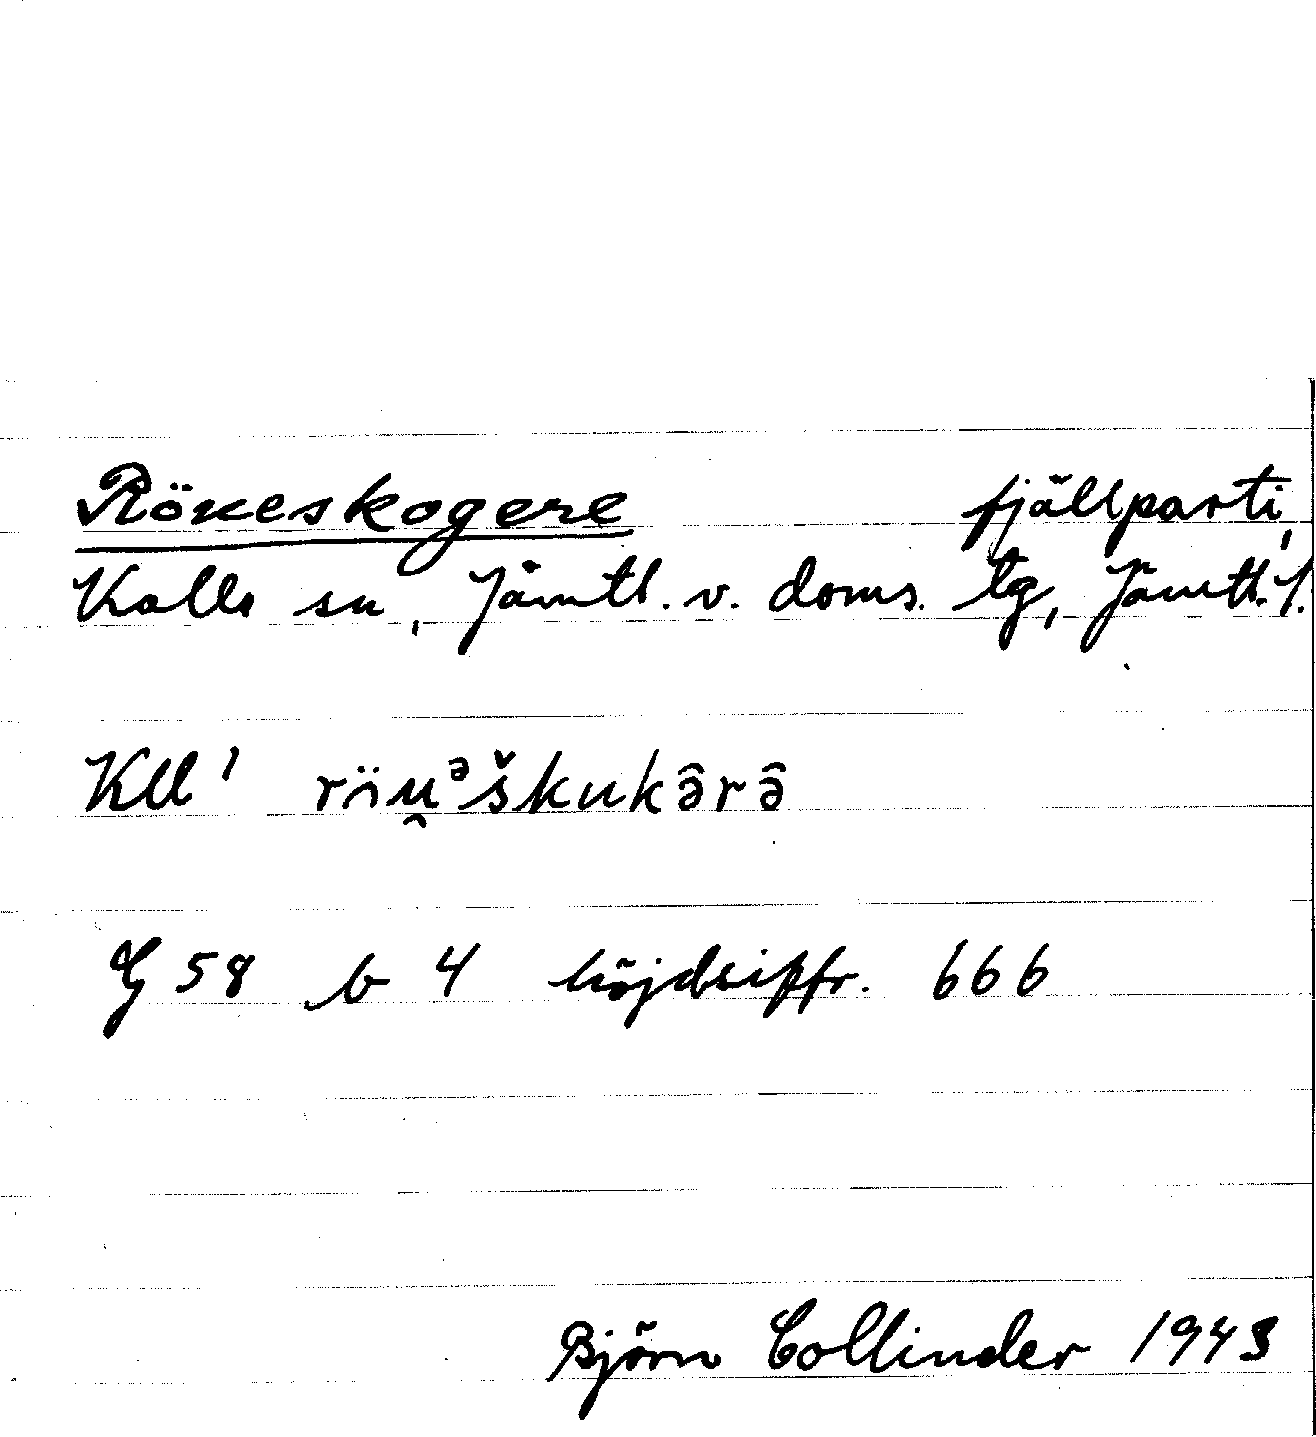 Röueskogere fjällparti,
Kalls sn, Jämtl. v. doms. tg, Jämtl. l.
Kll' röu̯ᵊškukə̂rə̂
G 58 b 4 höjdsiffr. 666
Björn Collinder 1943